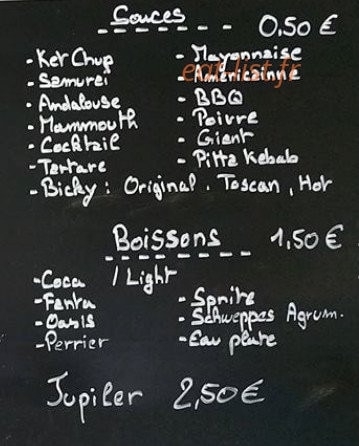 Sauces 0.50 €
- Ketchup
- Samurei
- Andalouse
- Mammouth
- Cocktail
- Tartare
- Mayonnaise
- Américainne
- BBQ
- Poivre
- Giant
- Pitta Kebab
- Bicky : Original . Toscan , Hot
Boissons 1,50 €
- Coca / Light
- Fanta
- Oasis
- Perrier
- Sprite
- Schweppes Agrum.
- Eau plate
Jupiler 2,50 €
eat-list.fr